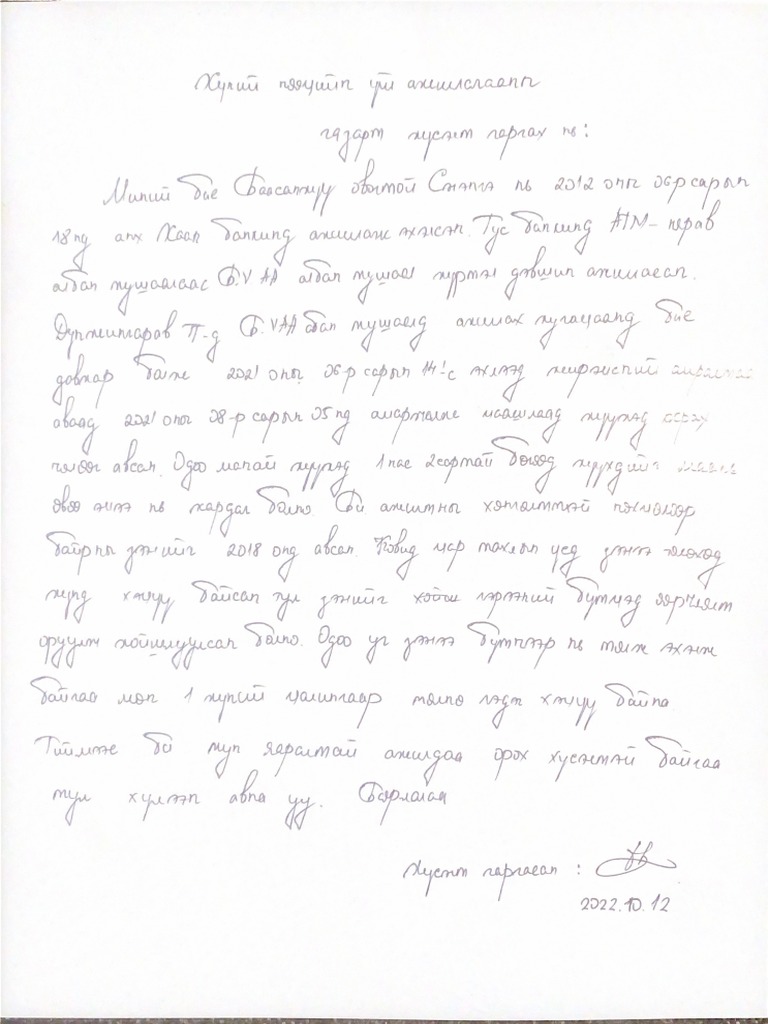 Хүний нөөцийн үйл ажиллагааны
газарт хүсэлт гаргах нь:
Миний бие Баасанжуу овогтой Сэлэнгэ нь 2012 оны 06-р сарын
18нд анх Хаан банкинд ажиллаж эхэлсэн. Тус банкинд АТМ-
албан тушаалаас Б.VАА албан тушаал хүртэл дэвшин ажилласан.
Дүнжингарав П-д Б.VАА албан тушаалд ажиллах хугацаанд бие
давхар болж 2021 оны 06-р сарын 14с эхлээд жирэмсний амралтаа
аваад 2021 оны 08-р сарын 05нд амаржиж цаашлаад хүүхэд асрах
чөлөө авсан. Одоо манай хүүхэд 1 нас 2 сартай бөгөөд хүүхдийг маань
өвөө эмээ нь хардаг болно. Би ажилтны хөнгөлөлттэй нөхцөлөөр
байрны зээлийг 2018 онд авсан. Ковид цар тахлын үед зээлээ төлөхөд
хүнд хэцүү байсан тул зээлийг гэрээний бүтцэд өөрчлөлт
оруулж хойшлуулсан болно. Одоо уг зээлээ бүтнээр нь төлж эхэлж
байгаа мөн 1 хүний цалингаар төлнө гэдэг хэцүү байна.
Тиймээс би тун яаралтай ажилдаа орох хүсэлтэй байгаа
тул хүлээн авна уу. Баярлалаа
Хүсэлт гаргасан :
2022.10.12